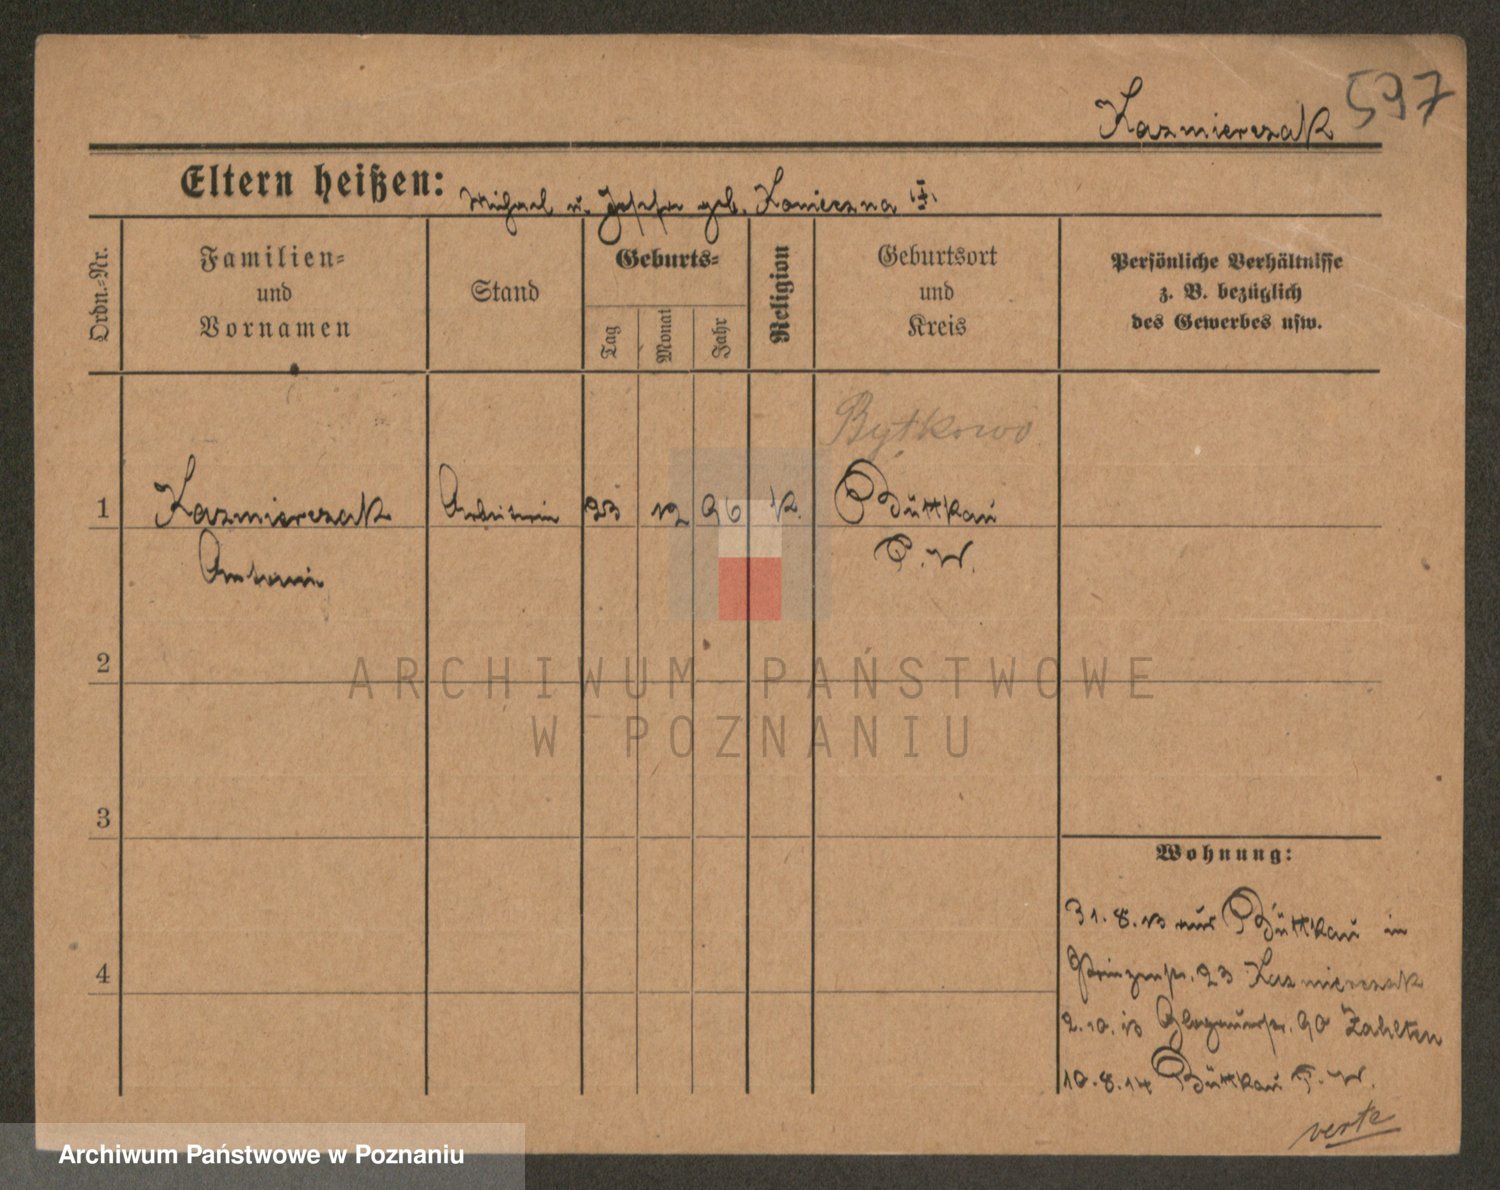 597
Kazmierczak
Eltern heißen: Michael u. Josefa geb. Konieczna
Ordn.-Nr.
Familien-
und
Vornamen
Stand
Geburts-
Tag
Monat
Jahr
Religion
Geburtsort
und
Kreis
Persönliche Verhältnisse
z. B. bezüglich
des Gewerbes usw.
Bytkowo
1 Kazmierczak Arbeiterin 23 12 96 k. Büttkau
Antonie P. W.
2
3
4
Wohnung:
31.8.13 aus Büttkau in
Prinzenstr. 23 Kazmierczak
2.10.13 Glogauerstr. 90 Zahlten
10.8.14 Büttkau P. W.
verte
ARCHIWUM PAŃSTWOWE
W POZNANIU
Archiwum Państwowe w Poznaniu